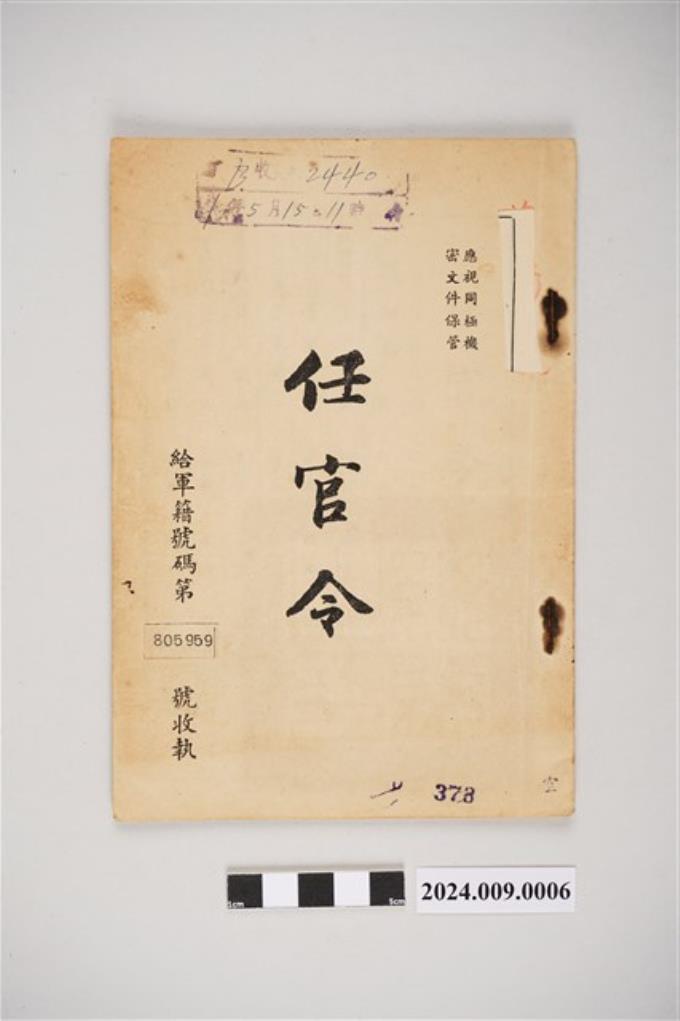 收 2440
5月15日11時
應視同極機
密文件保管
任官令
給軍籍號碼第
805959
號收執
378
空
1cm
5cm
2024.009.0006